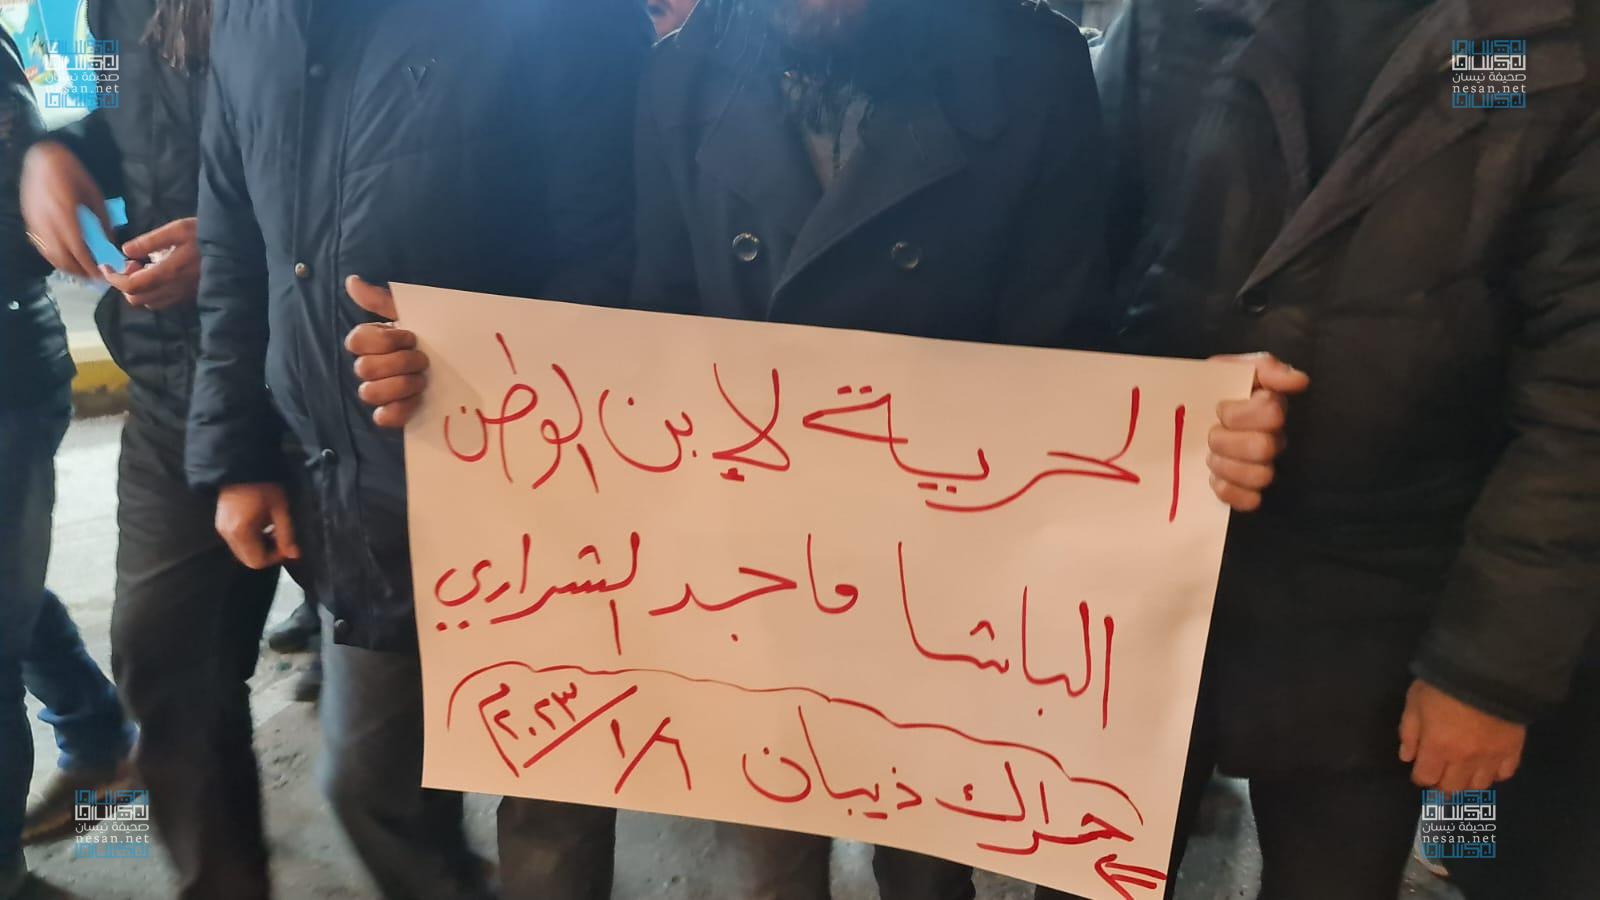 صحيفة نيسان
nesan.net
صحيفة نيسان
nesan.net
الحرية لإبن الوطن
الباشا ماجد الشراري
حراك ذيبان ٦/١/٢٠٢٣م
صحيفة نيسان
nesan.net
صحيفة نيسان
nesan.net